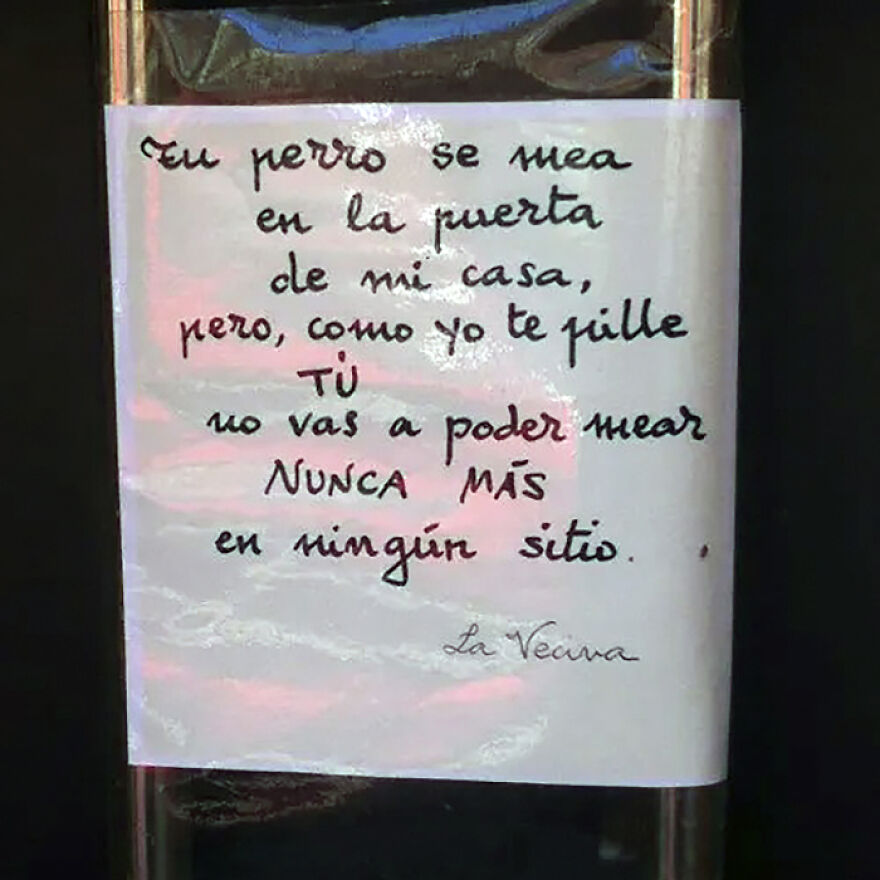 Tu perro se mea
en la puerta
de mi casa,
pero, como yo te pille
TÚ
no vas a poder mear
NUNCA MÁS
en ningún sitio.
La Vecina